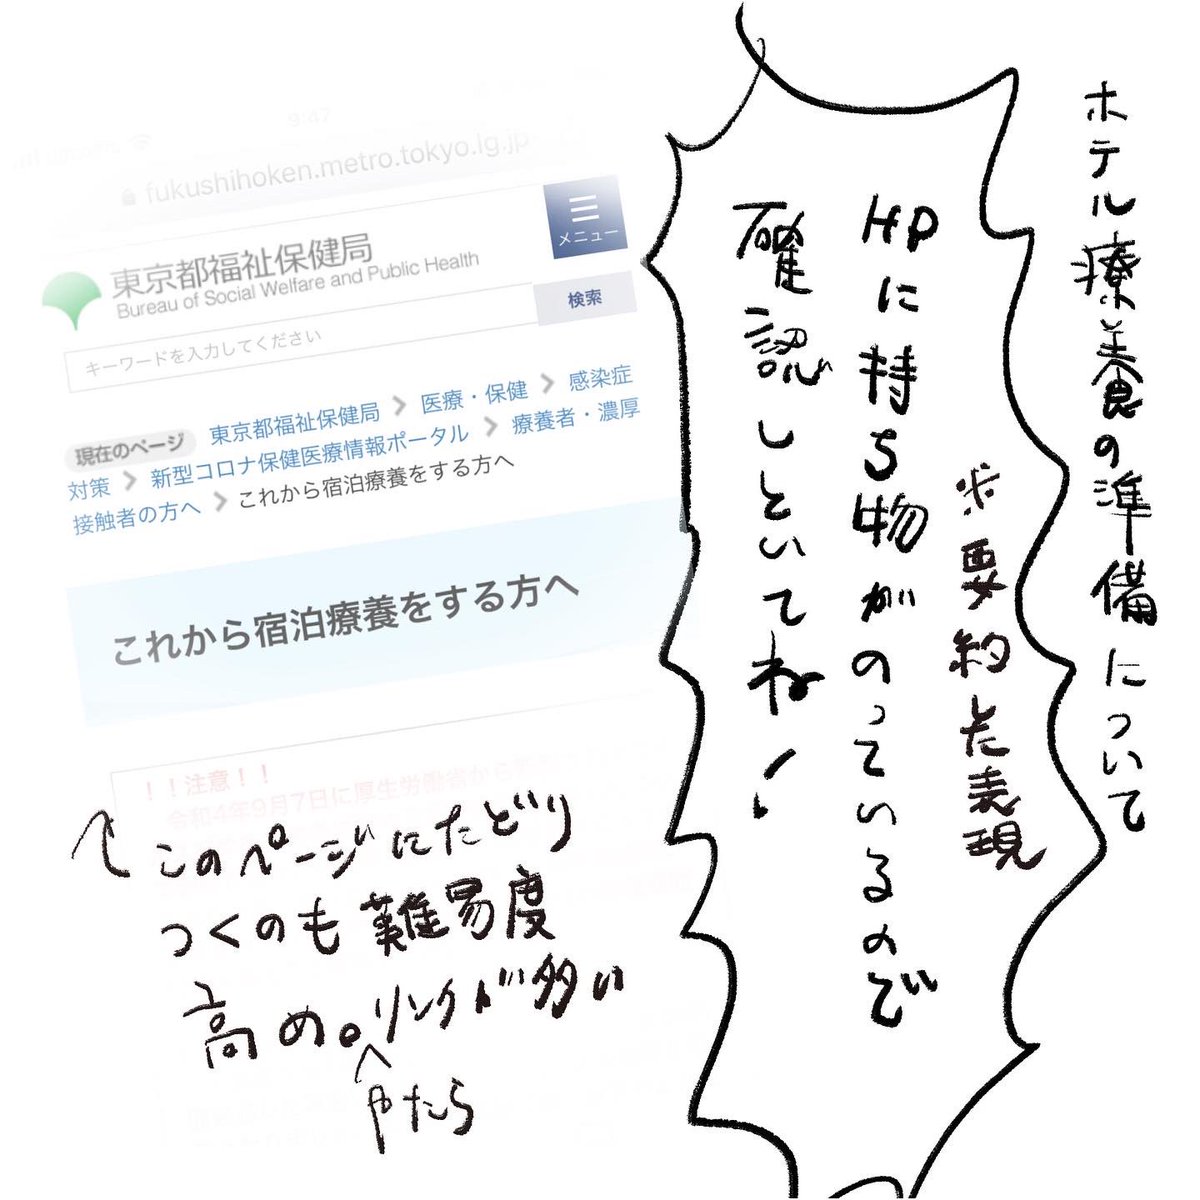 ホテル療養の準備について
※要約した表現
HPに持ち物がのっているので
確認しといてね!
9:47
fukushihoken.metro.tokyo.lg.jp
メニュー
東京都福祉保健局
Bureau of Social Welfare and Public Health
キーワードを入力してください
検索
現在のページ 東京都福祉保健局 > 医療・保健 > 感染症
対策 > 新型コロナ保健医療情報ポータル > 療養者・濃厚
接触者の方へ > これから宿泊療養をする方へ
これから宿泊療養をする方へ
!!注意!!
令和4年9月7日に厚生労働省から
このページにたどり
つくのも難易度
高め。リンクが多い
やたら